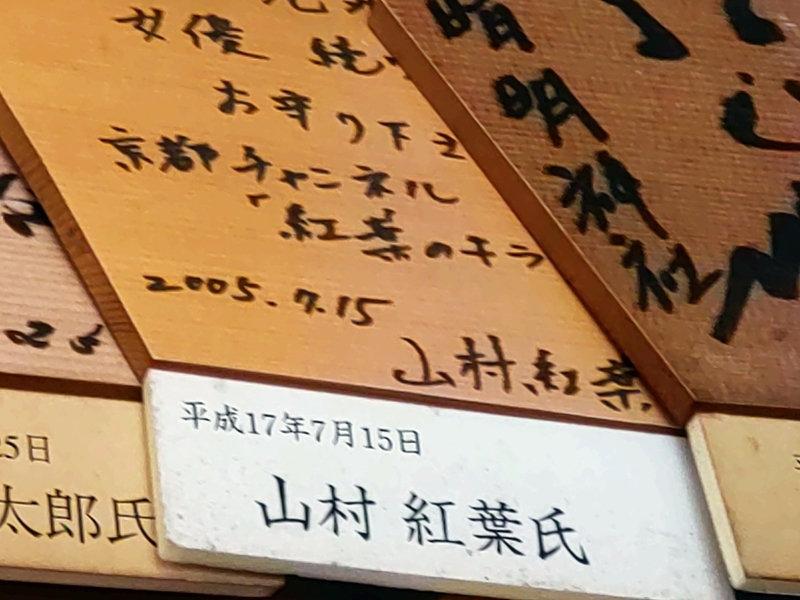 女優 続
お守り下さ
京都チャンネル
「紅葉のキラ
2005.7.15
山村紅葉
平成17年7月15日
山村 紅葉氏
晴明神社
25日
太郎氏